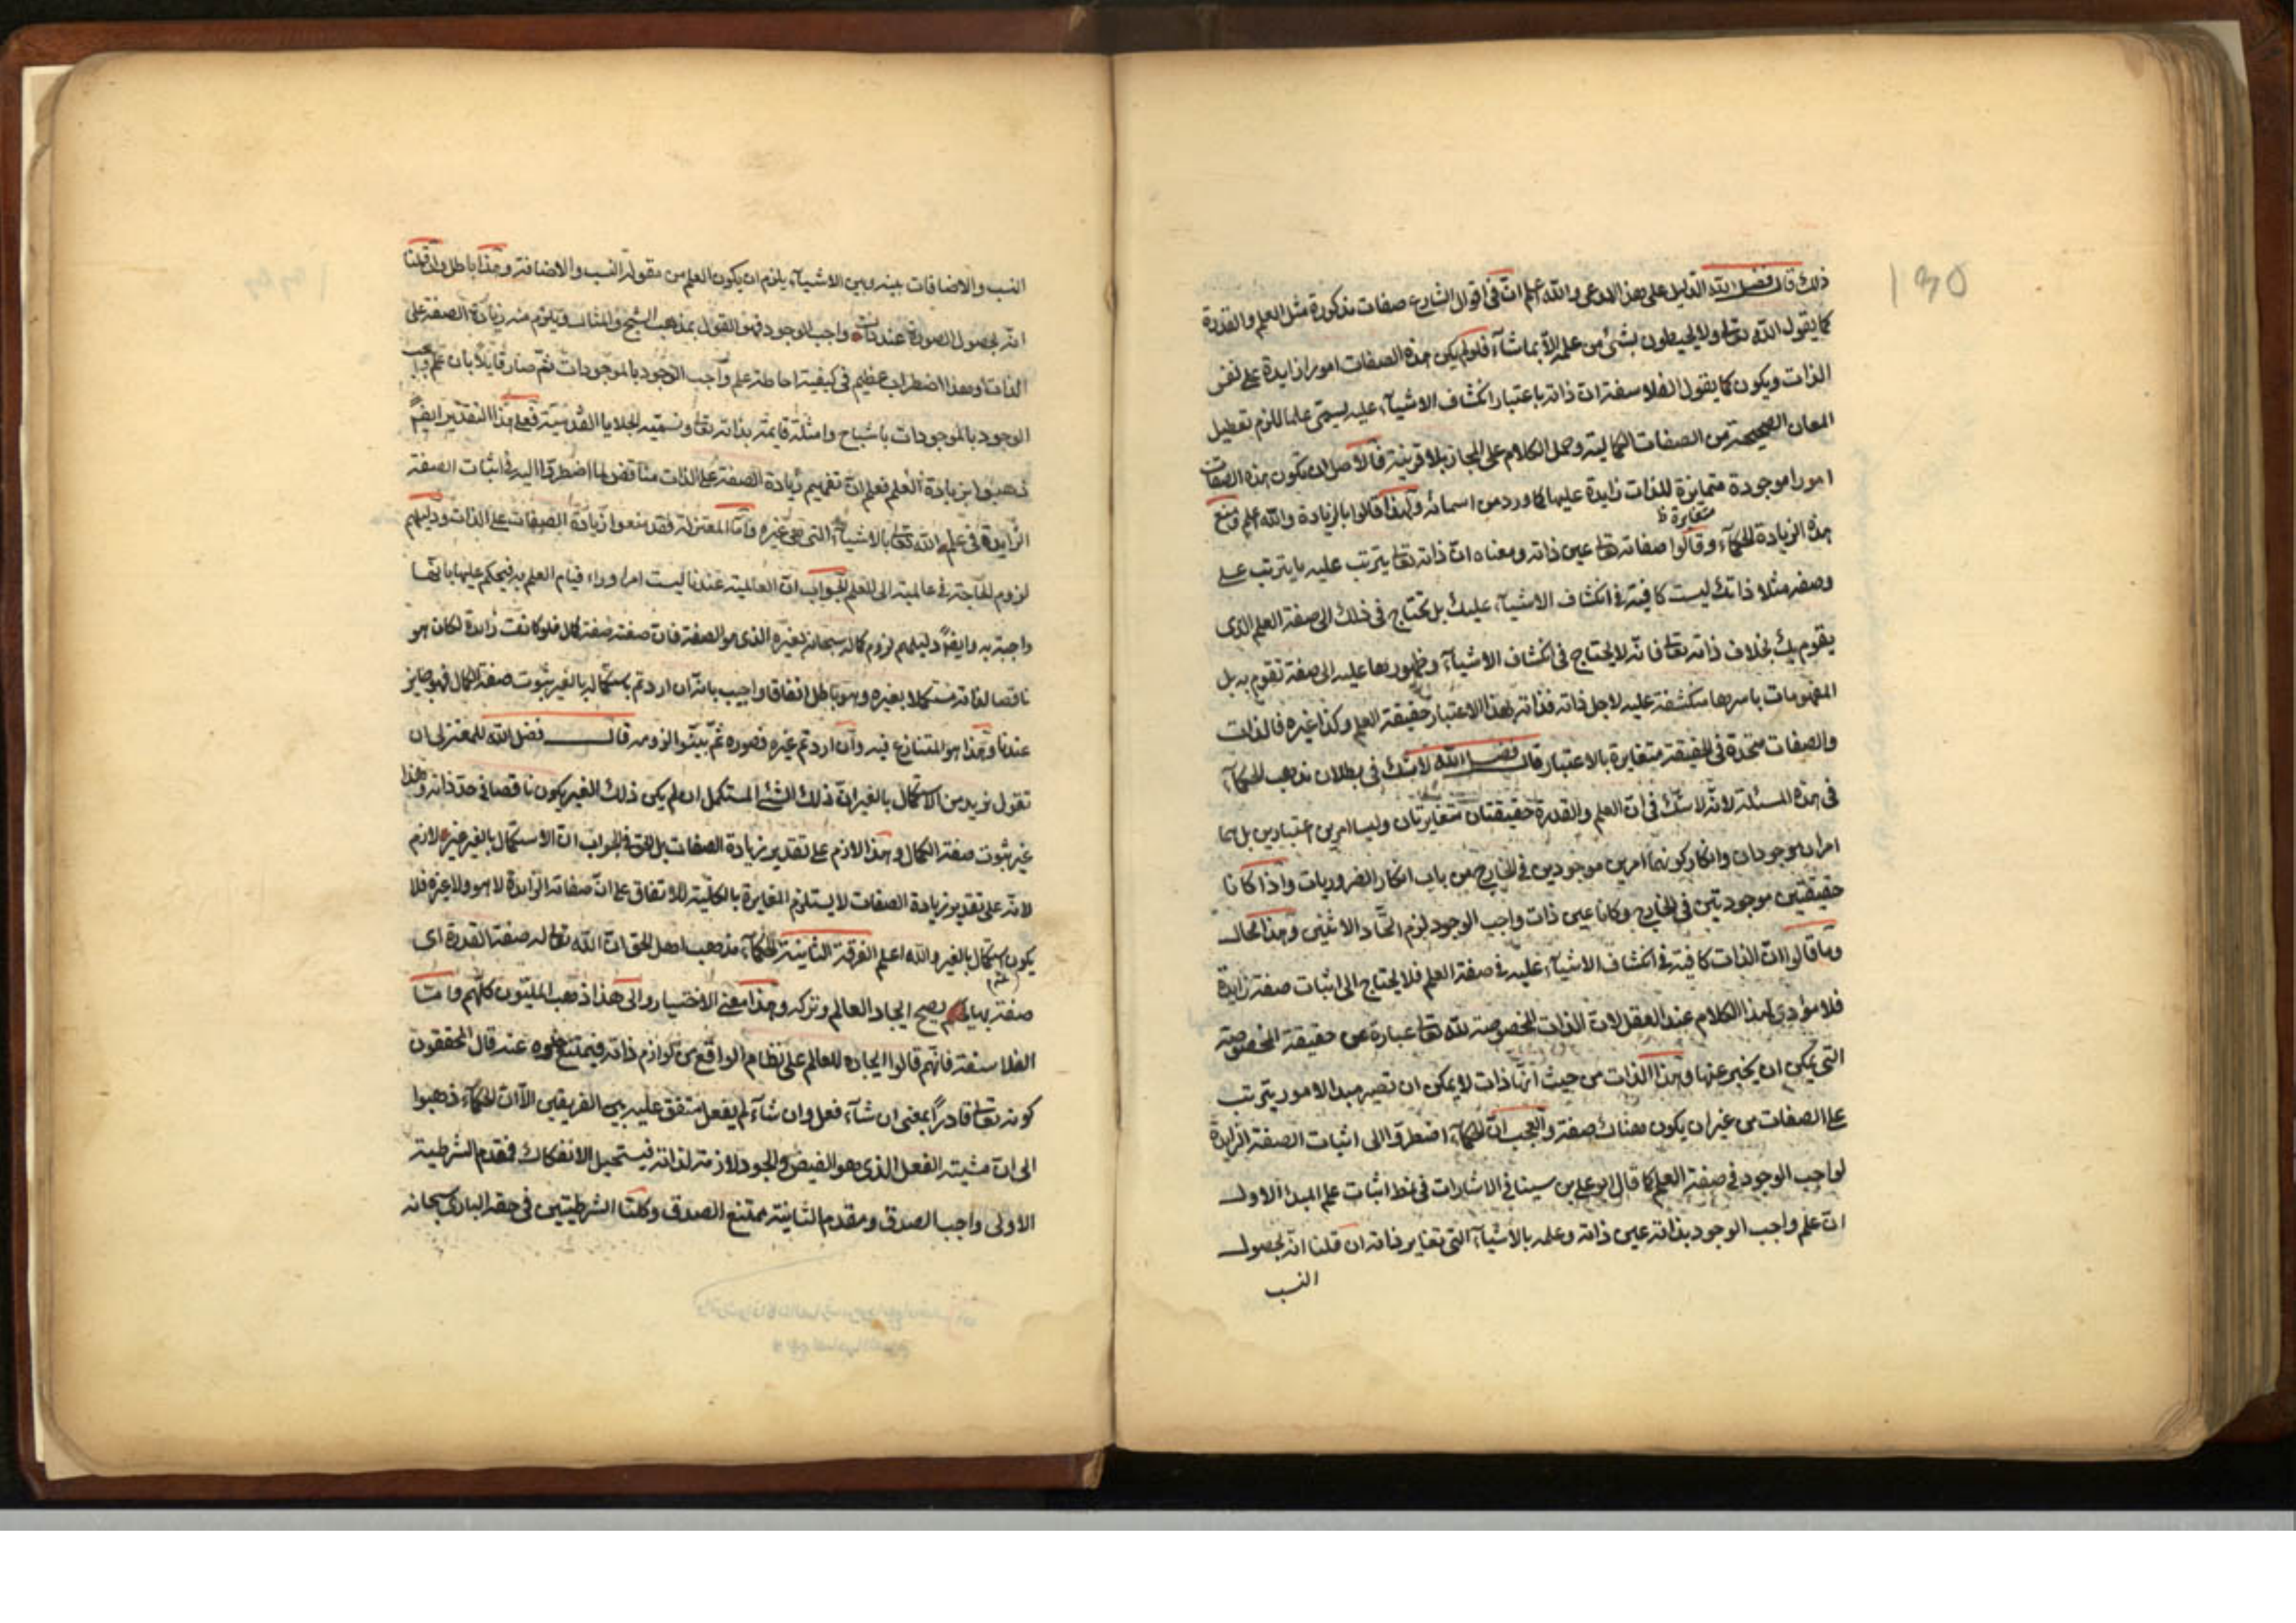 ذلك قال فضل الله الدليل على هذا المدعى والله اعلم ان فى اقوال الشارع صفات مذكورة مثل العلم والقدرة
كما يقول الله تعالى ولا يحيطون بشئ من علمه الا بما شاء فلو لم يكن هذه الصفات امورا زايدة على نفس
الذات ويكون كما يقول الفلاسفة ان ذاته باعتبار انكشاف الاشياء عليه يسمى علما للزم تعطيل
المعان الصحيحة من الصفات الكمالية وحمل الكلام على المجاز بلا قرينة فالاصل ان تكون هذه الصفات
امورا موجودة متمايزة للذات زايدة عليها كما ورد من اسمائه ولهذا قالوا بالزيادة والله اعلم ومنع
متغايرة ظ
هذه الزيادة الحكماء وقالوا صفاته تعالى عين ذاته ومعناه ان ذاته تعالى يترتب عليه ما يترتب على
وصفه مثلا ذاتك ليست كافية فى انكشاف الاشياء عليك بل تحتاج فى ذلك الى صفة العلم الذى
يقوم بك بخلاف ذاته تعالى فانه لا يحتاج فى انكشاف الاشياء وظهورها عليه الى صفة تقوم به بل
المفهومات باسرها منكشفة عليه لاجل ذاته فذاته بهذا الاعتبار حقيقة العلم وكذا غيره فالذات
والصفات متحدة فى الحقيقة متغايرة بالاعتبار قال فضل الله لا شك فى بطلان مذهب الحكماء
فى هذه المسئلة لانه لا شك فى ان العلم والقدرة حقيقتان متغايرتان وليسا امرين اعتباريين بل هما
امران موجودان وانكار كونهما امرين موجودين فى الخارج من باب انكار الضروريات واذا كانا
حقيقتين موجودتين فى الخارج وكانا عين ذات واجب الوجود لزم اتحاد الاثنين وهذا محال
وما قالوا ان الذات كافية فى انكشاف الاشياء عليه فى صفة العلم فلا يحتاج الى اثبات صفة زايدة
فلا مؤدى لهذا الكلام عند العقل لان الذات المخصوصة لله تعالى عبارة عن حقيقة المخصوصة
التى يمكن ان يخبر عنها وهذا الذات من حيث انها ذات لا يمكن ان تصير مبدا لامور يترتب
على الصفات من غير ان يكون هناك صفة والعجب ان الحكماء اضطروا الى اثبات الصفة الزايدة
لواجب الوجود فى صفة العلم كما قال ابو على بن سينا فى الاشارات فى نمط اثبات علم المبدا الاول
ان علم واجب الوجود بذاته عين ذاته وعلمه بالاشياء التى تغاير ذاته ان قلنا انه بحصول
النسب
النسب والاضافات بينه وبين الاشياء يلزم ان يكون العلم من مقولة النسب والاضافة وهذا باطل وان قلنا
انه بحصول الصورة عند ذات واجب الوجود فهو القول بمذهب الشبح والمثال ويلزم منه زيادة الصفة على
الذات وهذا اضطراب عظيم فى كيفية احاطة علم واجب الوجود بالموجودات ثم صار قايلا بان علم واجب
الوجود بالموجودات باشباح وامثلة قايمة بذاته تعالى ونسميه الجلايا القدسية فعلى هذا التقدير ايضا
ذهبوا بزيادة العلم فعلم ان نفيهم زيادة الصفة على الذات مناقض لما اضطروا اليه فى اثبات الصفة
الزايدة فى علم الله تعالى بالاشياء التى هى غيره واما المعتزلة فقد منعوا زيادة الصفات على الذات ودليلهم
لزوم الحاجة فى عالميته الى العلم الجواب ان العالمية عندنا ليست امرا وراء قيام العلم به فيحكم عليها بانها
واجبة به وايضا دليلهم لزوم كماله سبحانه لغيره الذى هو الصفة فان صفته صفة كمال فلو كانت زايدة لكان هو
ناقصا لذاته مستكملا بغيره وهو باطل اتفاقا واجيب بانه ان اردتم باستكماله بالغير ثبوت صفة الكمال فهو جايز
عندنا وهذا هو المتنازع فيه وان اردتم غيره فصوره ثم بينوا لزومه قال فضل الله للمعتزلى ان
تقول نريد من الاستكمال بالغير ان ذلك الشئ المستكمل ان لم يكن ذلك الغير يكون ناقصا فى حد ذاته وهذا
غير ثبوت صفة الكمال وهذا لازم على تقدير زيادة الصفات بل الحق فى الجواب ان الاستكمال بالغير غير لازم
لانه على تقدير زيادة الصفات لا يستلزم المغايرة بالكلية للاتفاق على ان صفاته الزايدة لا هو ولا غيره فلا
يكون استكمال بالغير والله اعلم الفرقة الثانية الحكماء مذهب اهل الحق ان الله تعالى له صفة القدرة اى
صفة بها يصح ايجاد العالم وتركه وهذا معنى الاختيار والى هذا ذهب المليون كلهم واما
الفلاسفة فانهم قالوا ايجاده للعالم على نظام الواقع من لوازم ذاته فيمتنع خلوه عنه قال المحققون
كونه تعالى قادرا بمعنى ان شاء فعل وان شاء لم يفعل متفق عليه بين الفريقين الا ان الحكماء ذهبوا
الى ان مشيته الفعل الذى هو الفيض والجود لازمة لذاته فيستحيل الانفكاك فمقدم الشرطية
الاولى واجب الصدق ومقدم الثانية ممتنع الصدق وكلتا الشرطيتين فى حقه البارى سبحانه